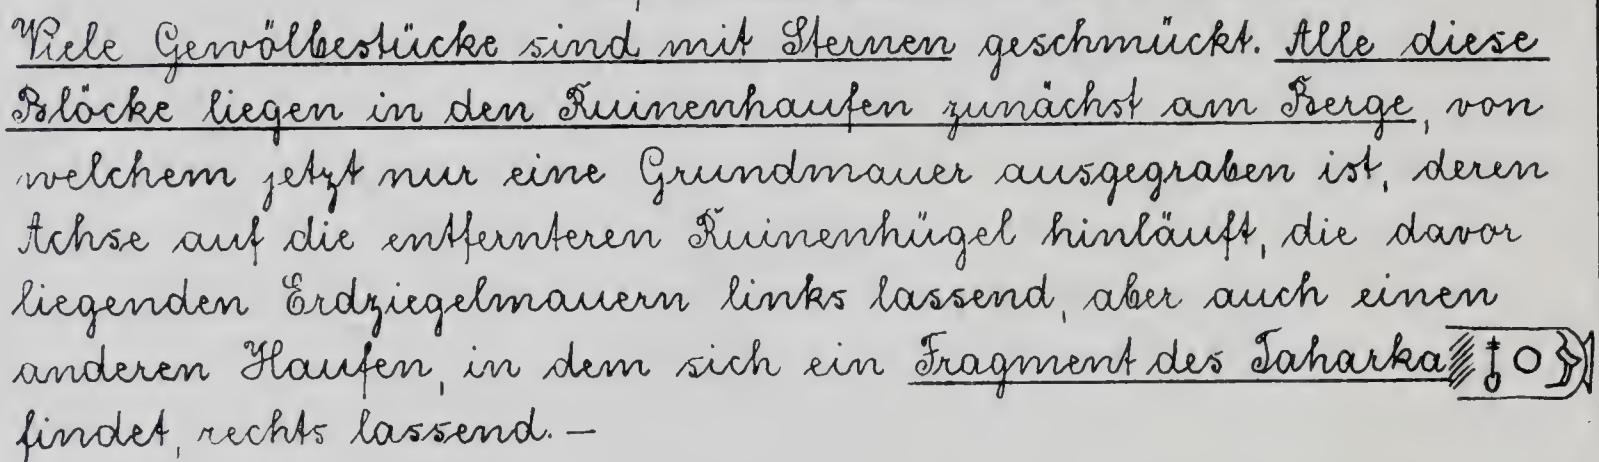 Viele Gewölbestücke sind mit Sternen geschmückt. Alle diese
Blöcke liegen in den Ruinenhaufen zunächst am Berge, von
welchem jetzt nur eine Grundmauer ausgegraben ist, deren
Achse auf die entfernteren Ruinenhügel hinläuft, die davor
liegenden Erdziegelmauern links lassend, aber auch einen
anderen Haufen, in dem sich ein Fragment des Taharka
findet, rechts lassend. —